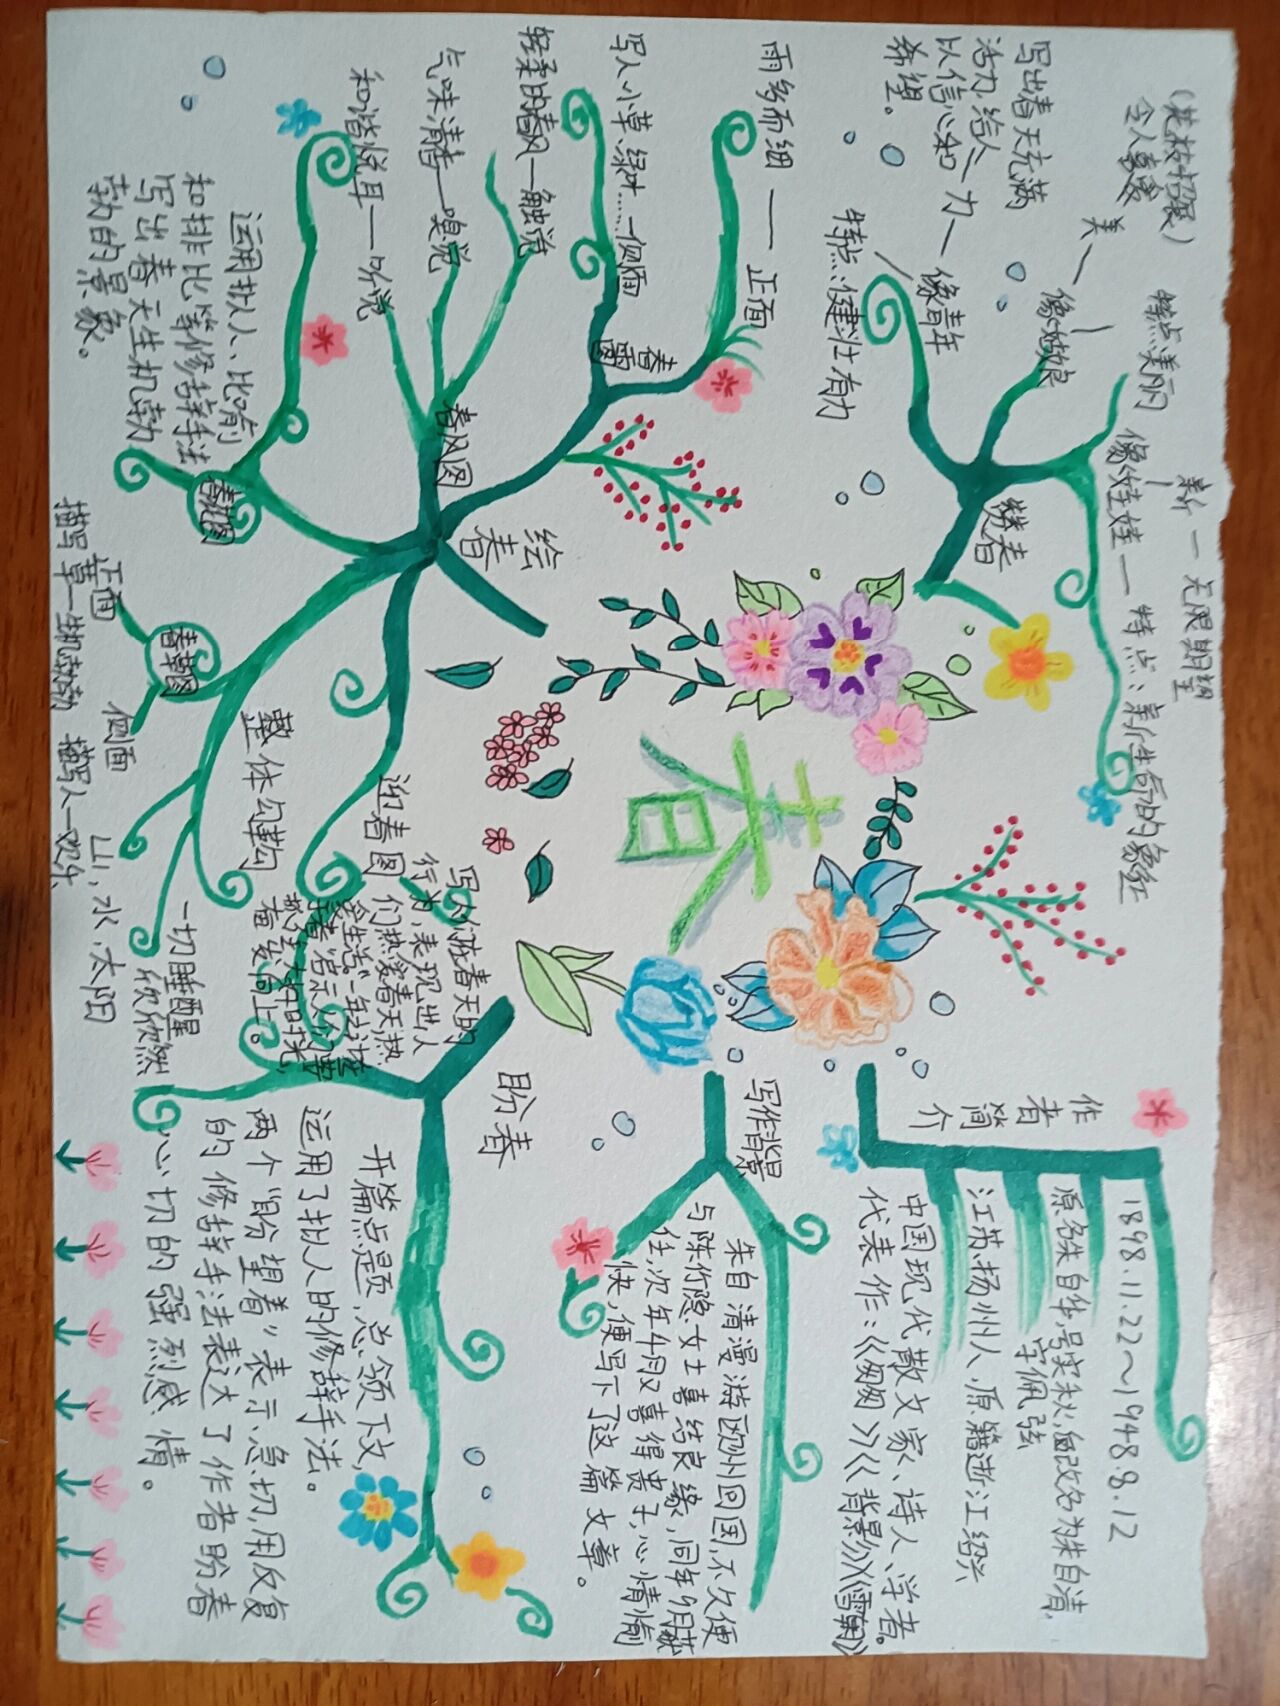 春
作者简介
1898.11.22~1948.8.12
原名朱自华,号实秋,后改名为朱自清,
字佩弦
江苏扬州人.原籍浙江绍兴
中国现代散文家、诗人、学者。
代表作:《匆匆》《背影》《雪朝》
写作背景
朱自清漫游欧洲回国,不久便
与陈竹隐女士喜结良缘,同年
住,次年4月又喜得贵子,心情愉
快,便写下了这篇文章。
盼春
开篇点题,总领下文,
运用了拟人的修辞手法。
两个“盼望着”表示急切,用反复
的修辞手法表达了作者盼春
心切的强烈感情。
绘春
整体勾勒
一切睡醒
欣欣然
山,水,太阳
春草图
正面
描写草一
侧面
描写人一欢乐
春花图
运用拟人、比喻
和排比等修辞手法
写出春天生机勃
勃的景象。
春风图
轻柔的春风—触觉
气味清香—嗅觉
和谐悦耳—听觉
春雨图
雨多而细——正面
写人、小草、绿叶……—侧面
迎春图
写人们在春天的
行为,表现出人
们热爱春天,热
爱生活。“一年之计在
抓住大好时光,
奋发向上。
赞春
新—无限期望
像娃娃——特点:新生命的象征
特点美丽
像姑娘
美—
(花枝招展)
令人喜爱
力—像青年
特点:健壮有力
写出春天充满
活力,给人
以信心和
希望。